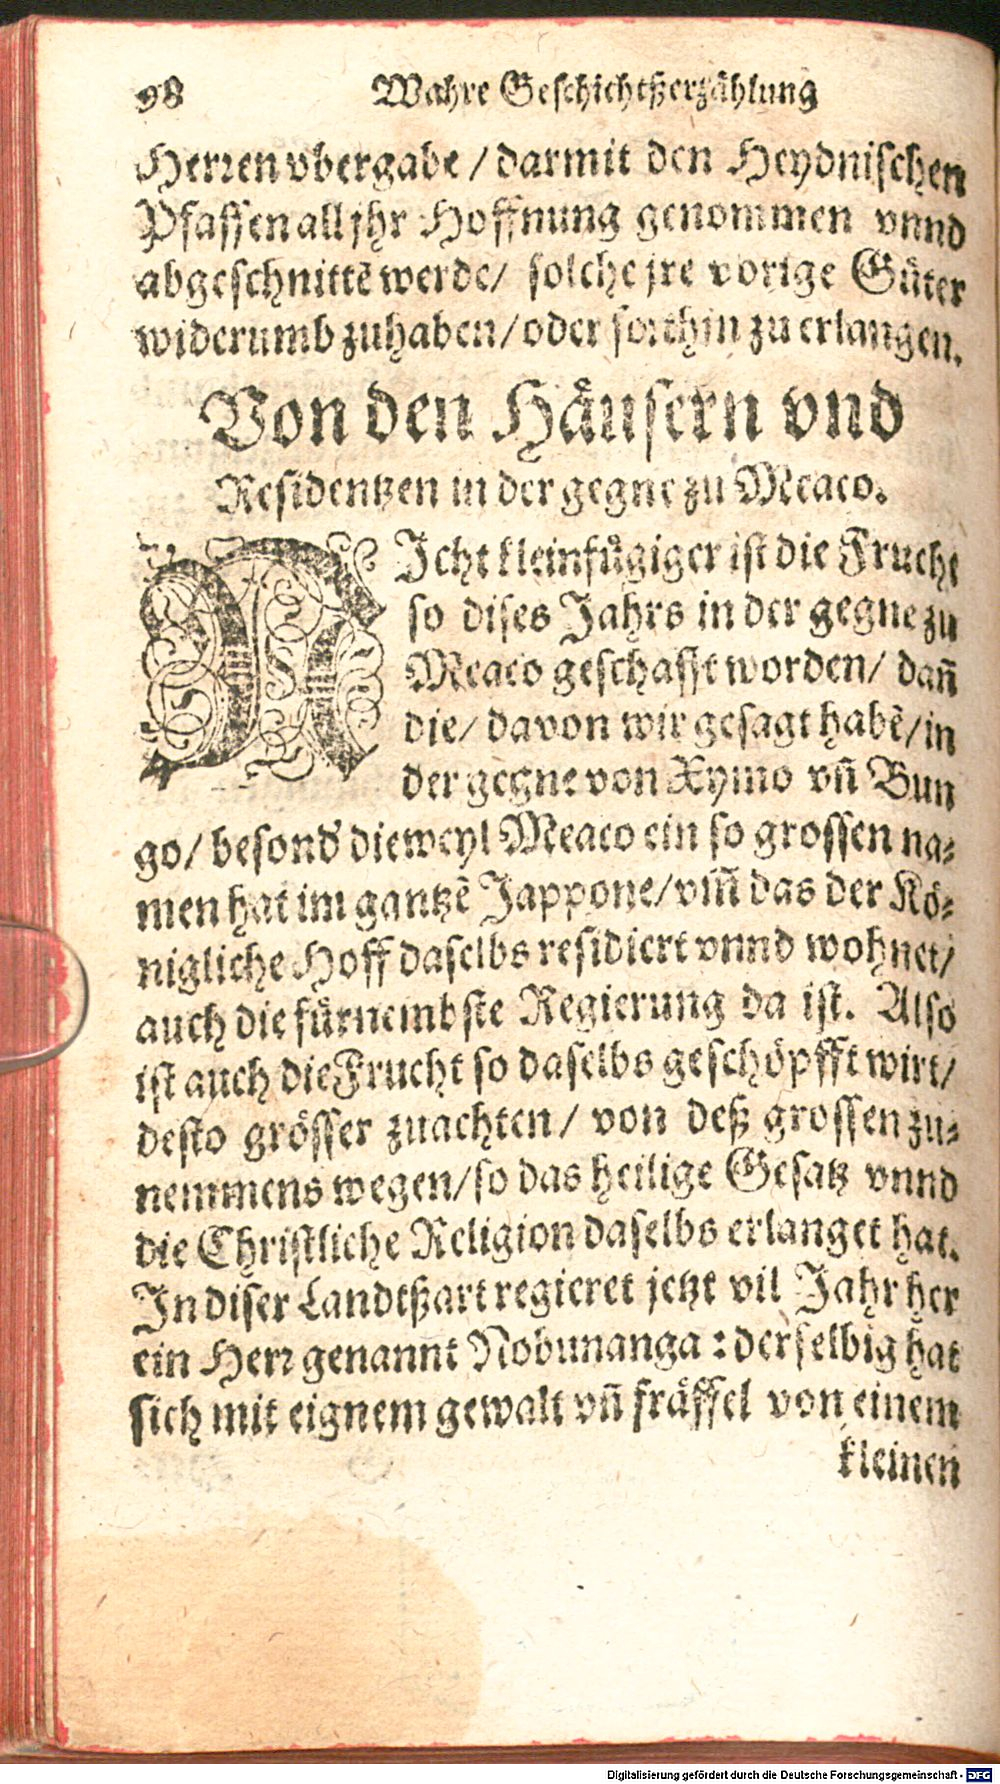 98 Wahre Geschichtßerzählung
Herren vbergabe / darmit den Heydnischen
Pfaffen all jhr Hoffnung genommen vnnd
abgeschnittē werde / solche jre vorige Güter
widerumb zuhaben / oder forthin zu erlangen.
Von den Häusern vnd
Residentzen in der gegne zu Meaco.
NJcht kleinfügiger ist die Frucht
so dises Jahrs in der gegne zu
Meaco geschafft worden / dañ
die / davon wir gesagt habē / in
der gegne von Xymo vñ Bun
go / besond' dieweyl Meaco ein so grossen na⸗
men hat im gantzē Jappone / vm̄ das der Kö⸗
nigliche Hoff daselbs residiert vnnd wohnet /
auch die fürnembste Regierung da ist. Also
ist auch die Frucht so daselbs geschöpfft wirt /
desto grösser zuachten / von deß grossen zu⸗
nemmens wegen / so das heilige Gesatz vnnd
die Christliche Religion daselbs erlanget hat.
In diser Landtßart regieret jetzt vil Jahr her
ein Herr genannt Nobunanga : derselbig hat
sich mit eignem gewalt vñ fräffel von einem
kleinen
Digitalisierung gefördert durch die Deutsche Forschungsgemeinschaft - DFG